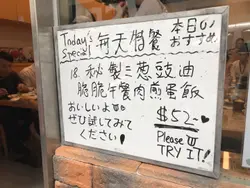 Today's Special 每天特餐
本日の おすすめ
18. 秘製三葱豉油
脆脆午餐肉煎蛋飯
おいしいよ
ぜひ試してみて
ください!
$52
Please
TRY IT!